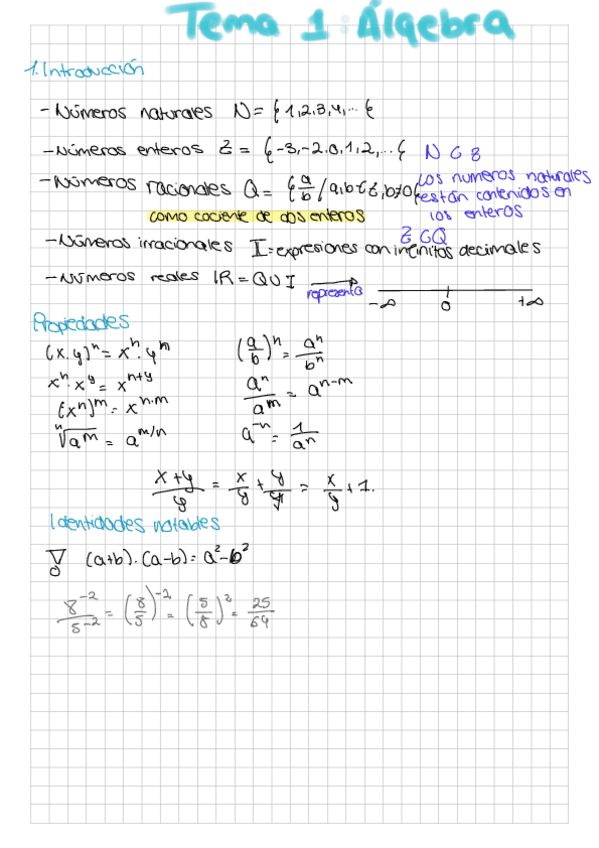 Tema 1: Álgebra
1. Introducción
- Números naturales N = { 1, 2, 3, 4, ... {
- Números enteros Z = { -3, -2, 0, 1, 2, ... { N ⊂ Z
- Números racionales Q = { a/b / a, b ∈ Z, b≠0 { Los numeros naturales
están contenidos en
como cociente de dos enteros los enteros
Z ⊂ Q
- Números irracionales I = expresiones con infinitos decimales
- Números reales IR = Q ∪ I representa -∞ 0 +∞
Propiedades
(x·y)^n = x^n · y^m (a/b)^n = a^n/b^n
x^n · x^y = x^(n+y) a^n/a^m = a^(n-m)
(x^n)^m = x^(n·m)
ⁿ√a^m = a^(m/n) a^(-n) = 1/a^n
(x+y)/y = x/y + y/y = x/y + 1.
Identidades notables
(a+b)·(a-b) = a² - b²
8^(-2)/5^(-2) = (8/5)^(-2) = (5/8)² = 25/64